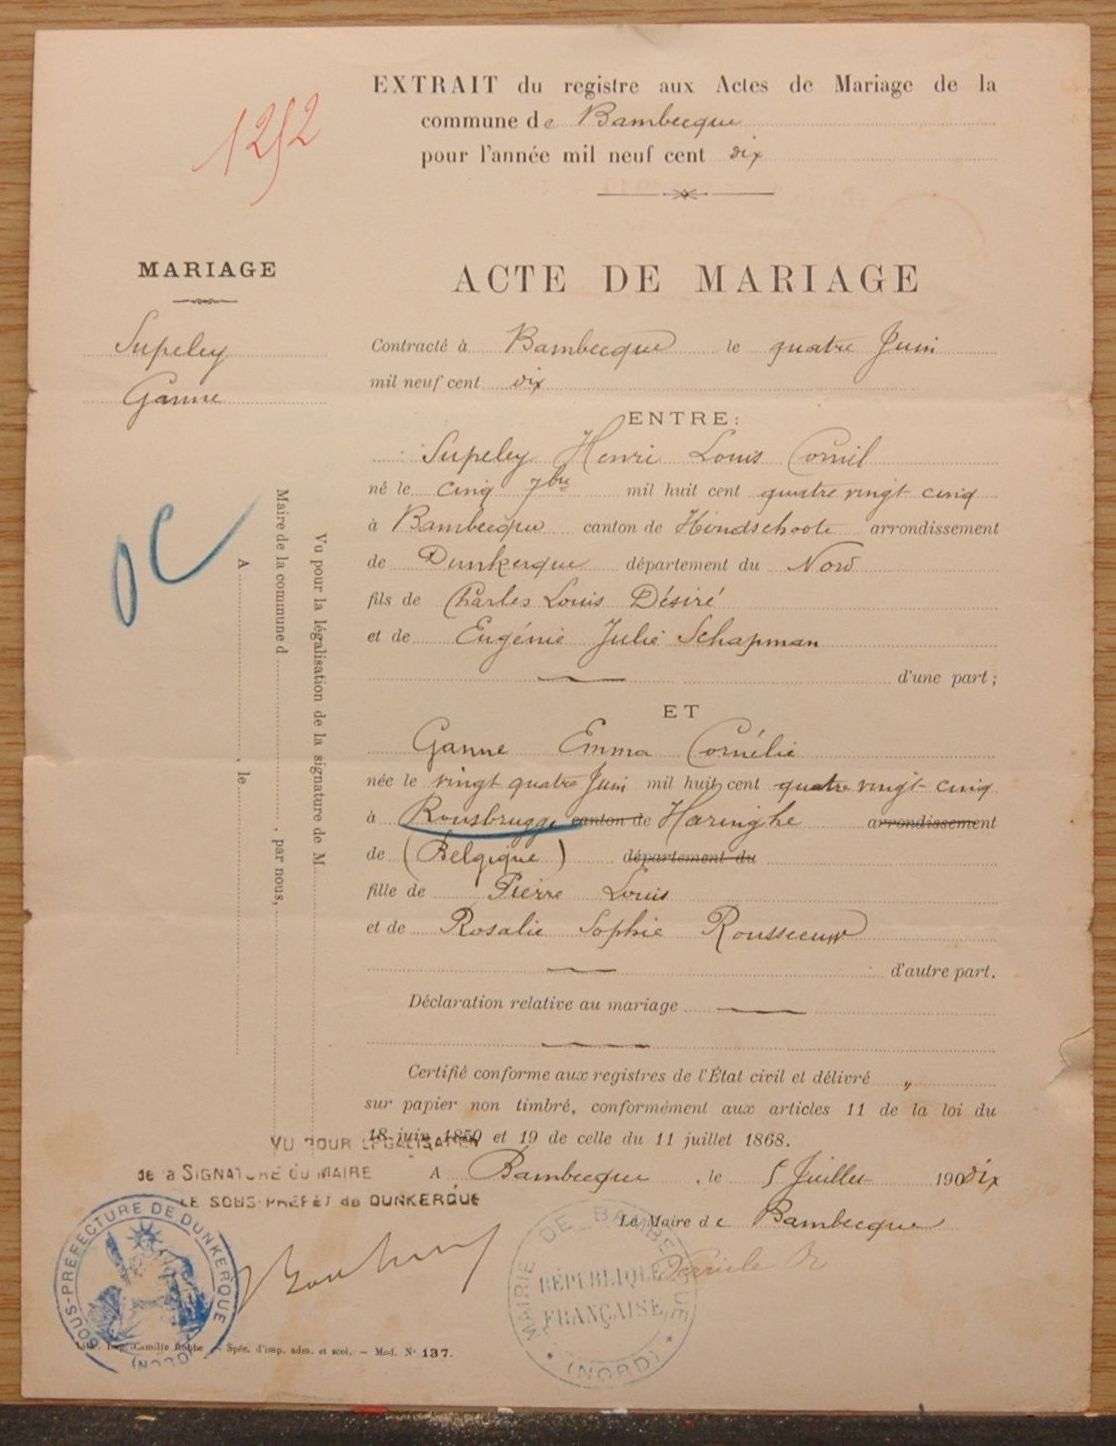 1252
EXTRAIT du registre aux Actes de Mariage de la
commune de Bambecque
pour l'année mil neuf cent dix
MARIAGE
Supeley
Ganne
ACTE DE MARIAGE
Contracté à Bambecque le quatre Juin
mil neuf cent dix
ENTRE:
Supeley Henri Louis Cornil
né le cinq 7bre mil huit cent quatre vingt cinq
à Bambecque canton de Hondschoote arrondissement
de Dunkerque département du Nord
fils de Charles Louis Désiré
et de Eugénie Julie Schapman
d'une part;
ET
Ganne Emma Cornélie
née le vingt quatre Juin mil huit cent quatre vingt cinq
à Rousbrugge canton de Haringhe arrondissement
de (Belgique) département du
fille de Pierre Louis
et de Rosalie Sophie Rousseeuw
d'autre part.
Déclaration relative au mariage
Certifié conforme aux registres de l'État civil et délivré "
sur papier non timbré, conformément aux articles 11 de la loi du
18 juin 1850 et 19 de celle du 11 juillet 1868.
A Bambecque, le 5 Juillet 190dix
Le Maire de Bambecque
Vu pour la légalisation de la signature de M
Maire de la commune d , par nous,
A , le
OC
VU POUR LEGALISATION
de la SIGNATURE DU MAIRE
LE SOUS-PRÉFET de DUNKERQUE
SOUS-PRÉFECTURE DE DUNKERQUE
(NORD)
MAIRIE DE BAMBECQUE
RÉPUBLIQUE
FRANÇAISE
(NORD)
Camille Spéc. d'imp. adm. et scol. — Mod. N° 137.